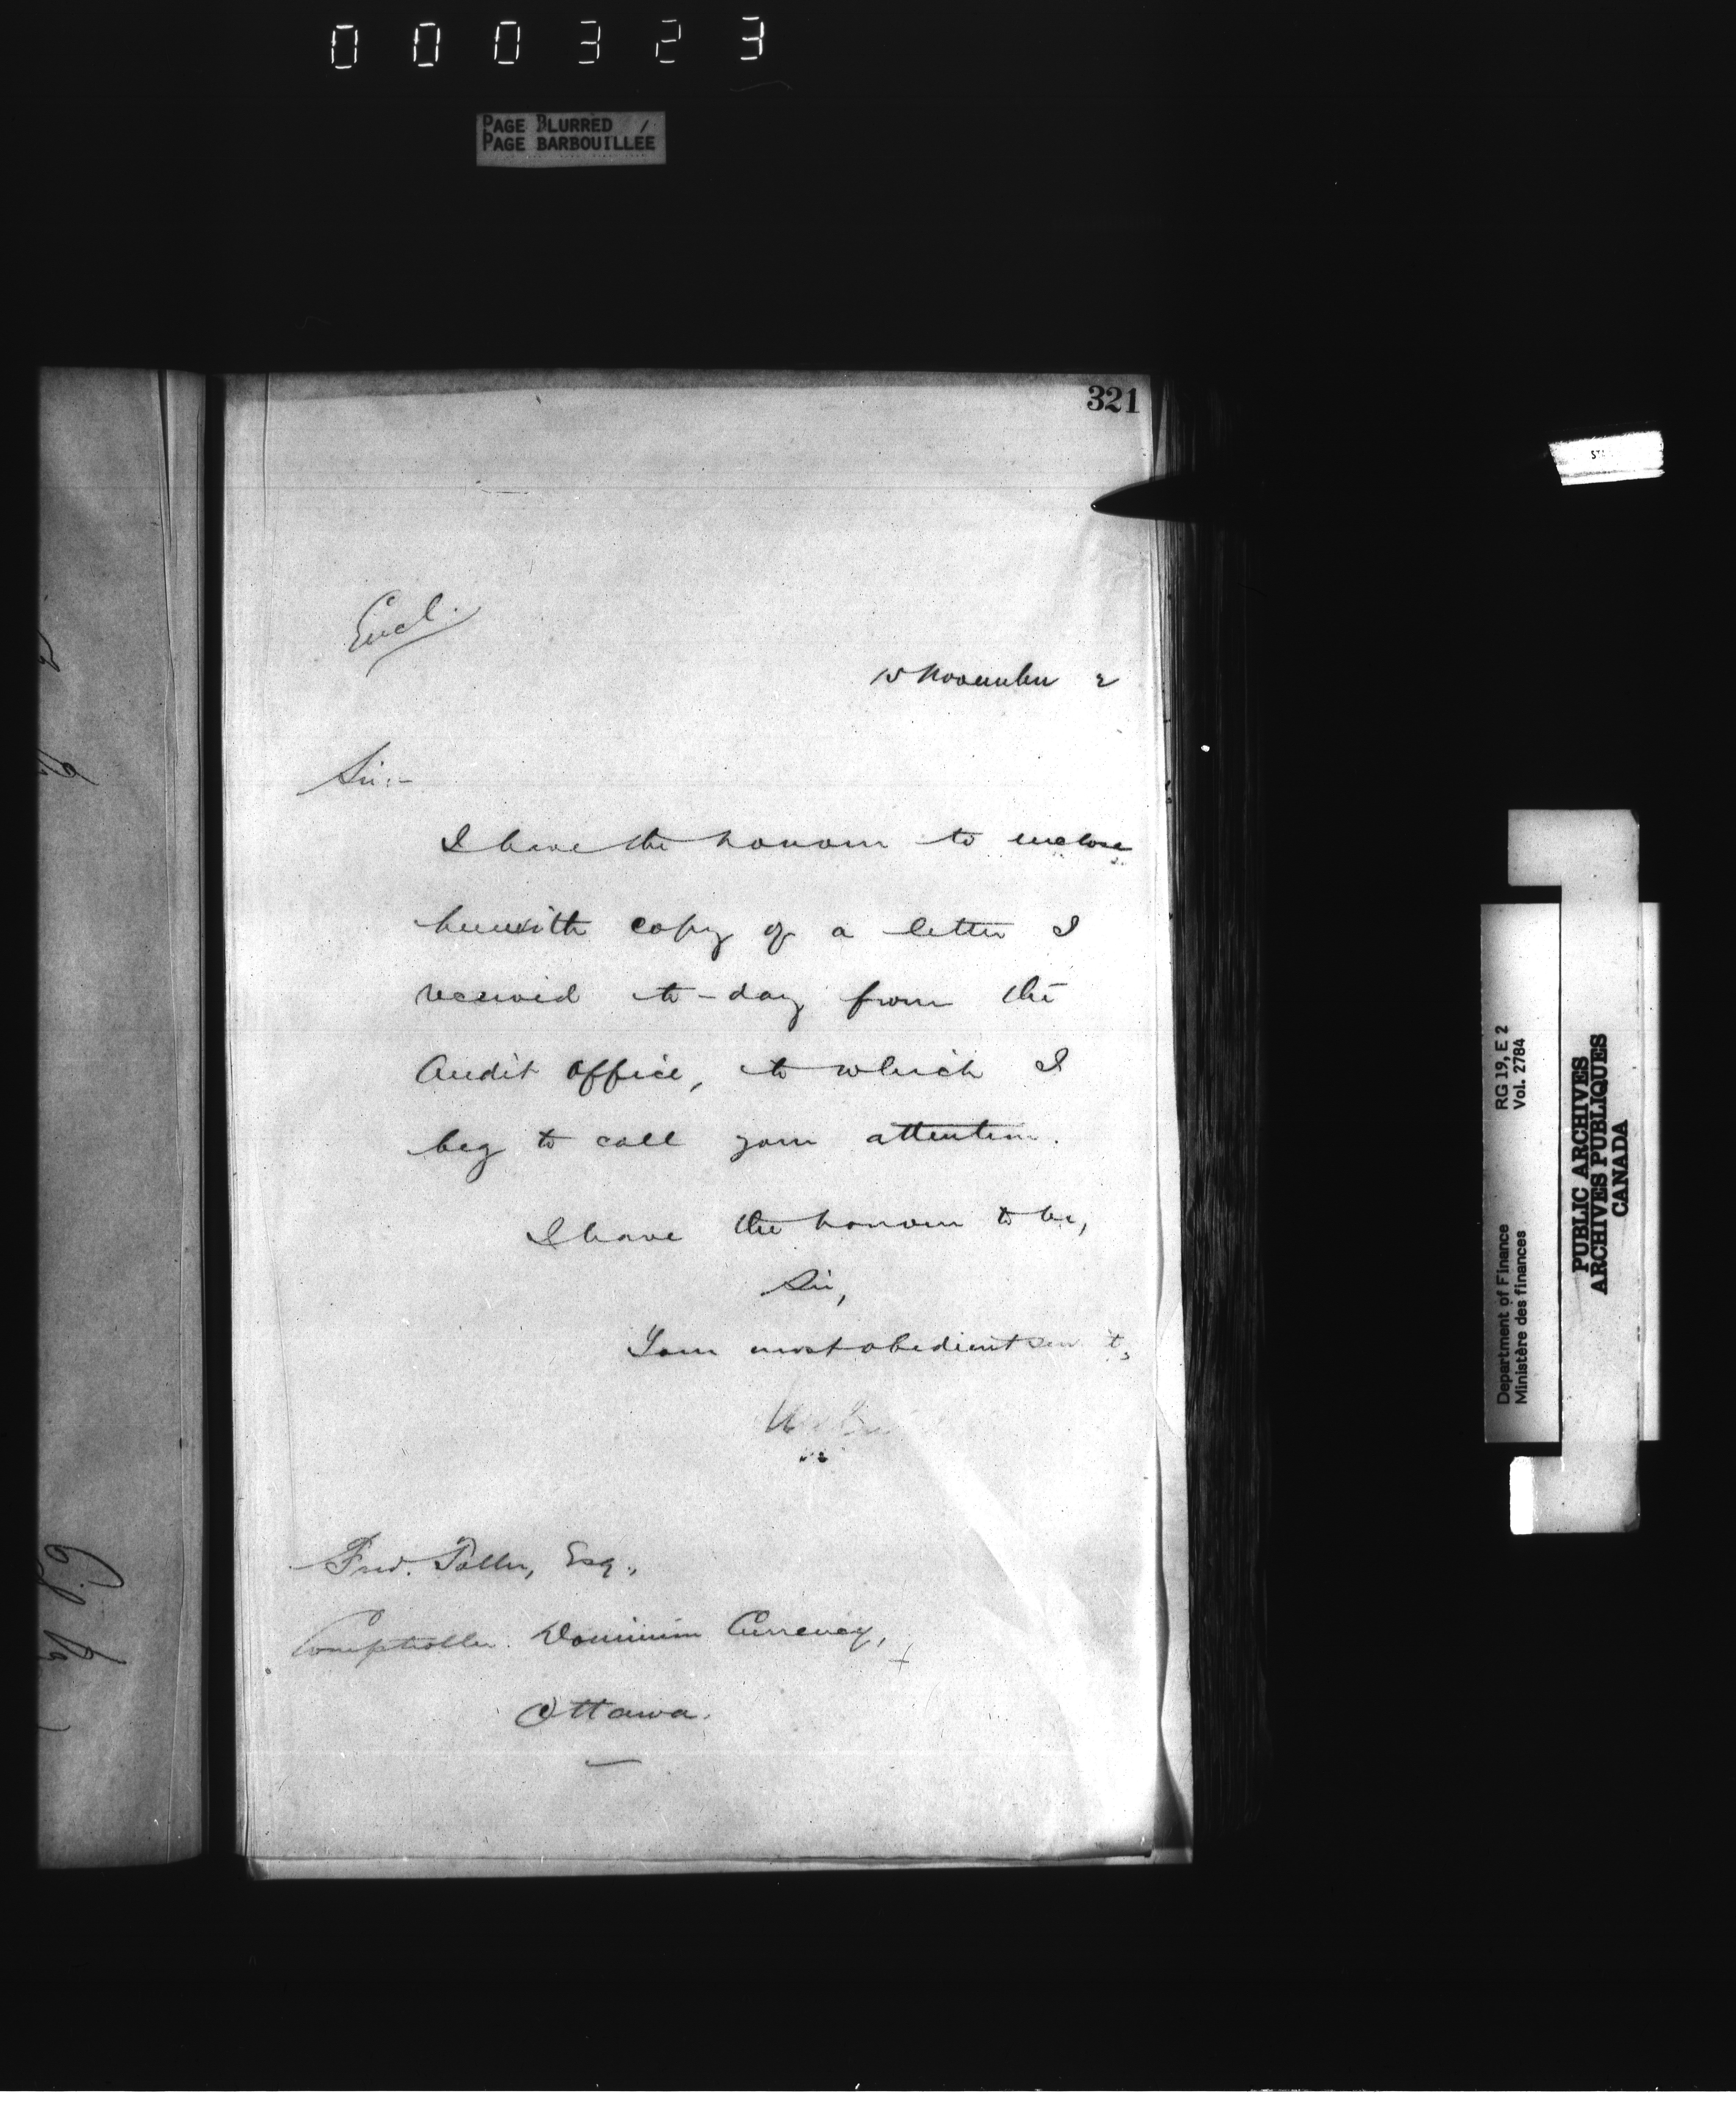 000323
PAGE BLURRED
PAGE BARBOUILLÉE
321
Encl.
15 November 2
Sir:-
I have the honour to enclose
herewith copy of a letter I
received to-day from the
Audit Office, to which I
beg to call your attention.
I have the honour to be,
Sir,
Your most obedient serv't,
Fred. Toller, Esq.,
Comptroller Dominion Currency,
Ottawa.
Department of Finance RG 19, E 2
Ministère des finances Vol. 2784
PUBLIC ARCHIVES
ARCHIVES PUBLIQUES
CANADA